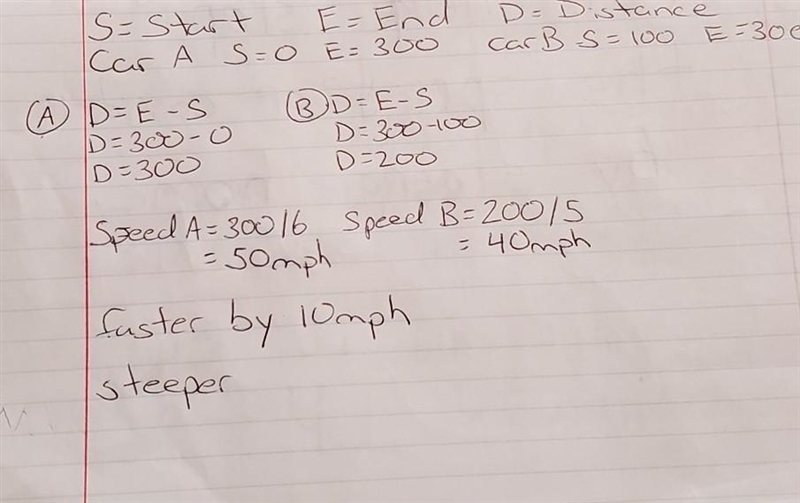 S = Start E = End D = Distance
Car A S = 0 E = 300 car B S = 100 E = 300
(A) D = E - S (B) D = E - S
D = 300 - 0 D = 300 - 100
D = 300 D = 200
Speed A = 300/6 Speed B = 200/5
= 50mph = 40mph
faster by 10mph
steeper